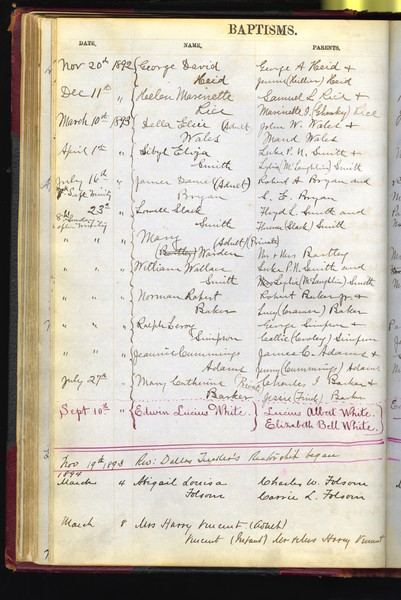 BAPTISMS.
DATE. NAME. PARENTS.
Nov 20th 1892 George David George A Heid &
Heid Jennie Heid
Dec 11th " Helen Marinette Samuel L Rice &
Rice Marinette I. Rice
March 10th 1893 Della Elsie (Adult John W. Wales &
Wales Maud Wales
April 1st " Sibyl Eliza Luke P. N. Smith &
Smith Sophia (McLaughlin) Smith
July 16th " James Dame (Adult) Robert H Bryan and
7th Trinity Bryan S. E. Bryan
" 23d " Lowell Slack Floyd L. Smith and
8th Sunday after Trinity Smith (Slack) Smith
" " " Mary (Adult) (Private)
(Bartley) Warden Mr & Mrs Bartley
" " " William Wallace Luke P. N. Smith and
Smith Sophia (McLaughlin) Smith
" " " Norman Robert Robert Baker Jr &
Baker Lucy (Cramer) Baker
" " " Ralph Leroy George Simpson &
Simpson Simpson
" " " Jeannie Cummings James C. Adams &
Adams Jenny (Cummings) Adams
July 27th " Mary Catherine Private Charles I Barker &
Barker Jessie Baker
Sept 10th " Edwin Lucius White. Lucius Albert White.
Elizabeth Bell White.
Nov 19th 1893 Rev: Dallas Tucker's Rectorship began
1894
March 4 Abigail Louisa Charles W. Folsom
Folsom Carrie L. Folsom
March 8 Mrs Harry Vincent (Adult)
Vincent (Infant) Mr & Mrs Harry Vincent